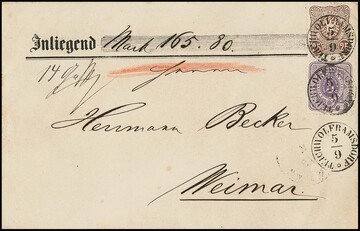 Inliegend Mark 165. 80.
Herrmann Becker
Weimar.
TEICHWOLFRAMSDORF
5/9